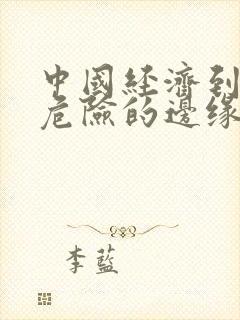 中國經濟到
危險的邊緣
李藍